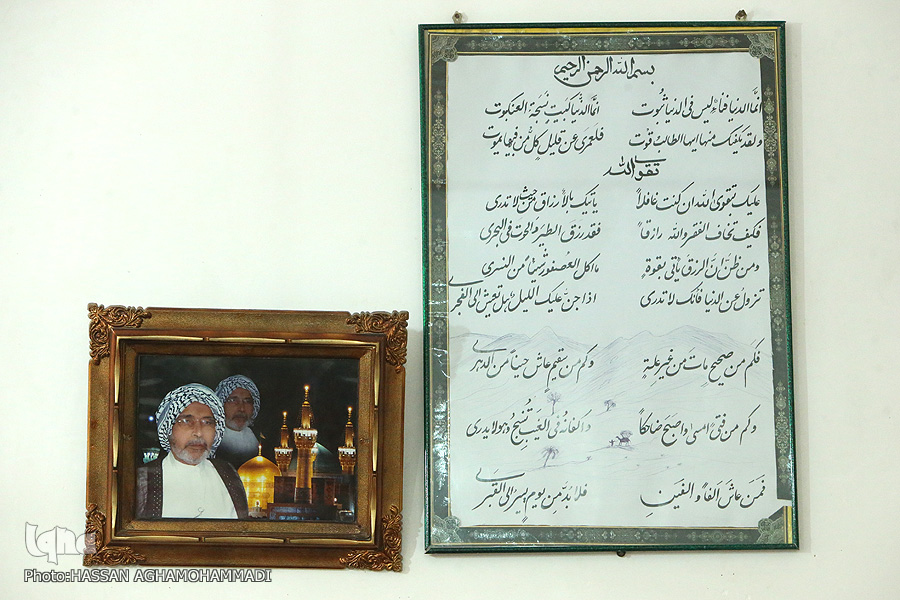 بسم الله الرحمن الرحیم
انما الدنیا فناء لیس فی الدنیا ثبوت انما الدنیا کبیت نسجة العنکبوت
ولقد یکفیک منها ایها الطالب قوت فلعمری عن قلیل کل من فیها یموت
تقوی الله
علیک بتقوی الله ان کنت غافلاً یأتیک بالأرزاق من حیث لا تدری
فکیف تخاف الفقر والله رازقاً فقد رزق الطیر والحوت فی البحری
ومن ظن ان الرزق یأتی بقوةٍ ما اکل العصفور شیئاً من النسری
تزول عن الدنیا فانک لا تدری اذا جن علیک اللیل هل تعیش الی الفجری
فکم من صحیح مات من غیر علةٍ وکم من سقیم عاش حیناً من الدهری
وکم من فتی امسی واصبح ضاحکاً واکفانه فی الغیب تنسج وهو لا یدری
فمن عاش الفاً والفین فلا بد من یوم یسیر الی القبری
iqna
Photo:HASSAN AGHAMOHAMMADI